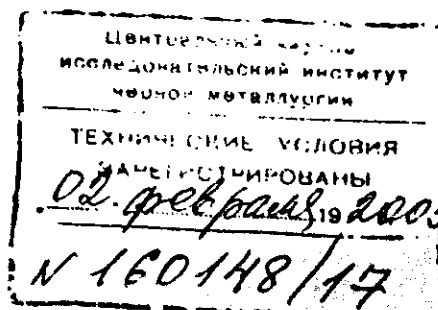 Центральный
исследовательский институт
черной металлургии
ТЕХНИЧЕСКИЕ УСЛОВИЯ
ЗАРЕГИСТРИРОВАНЫ
02. февраля 19
N 160148/17